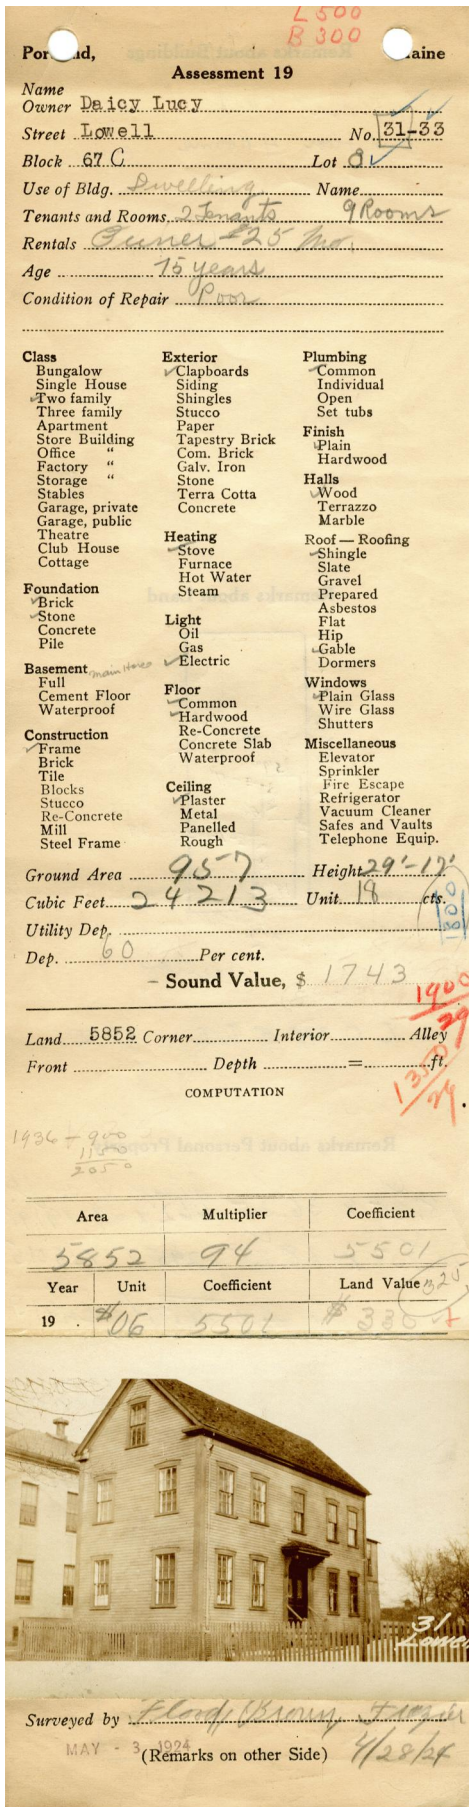 L 500
B 300
Portland, Maine
Assessment 19
Name
Owner Daicy Lucy
Street Lowell No. 31-33
Block 67 C Lot 8
Use of Bldg. Dwelling Name
Tenants and Rooms 2 Tenants 9 Rooms
Rentals Owner $25 Mo.
Age 75 years
Condition of Repair Poor
Class
Bungalow
Single House
Two family
Three family
Apartment
Store Building
Office "
Factory "
Storage "
Stables
Garage, private
Garage, public
Theatre
Club House
Cottage
Foundation
Brick
Stone
Concrete
Pile
Basement main House
Full
Cement Floor
Waterproof
Construction
Frame
Brick
Tile
Blocks
Stucco
Re-Concrete
Mill
Steel Frame
Exterior
Clapboards
Siding
Shingles
Stucco
Paper
Tapestry Brick
Com. Brick
Galv. Iron
Stone
Terra Cotta
Concrete
Heating
Stove
Furnace
Hot Water
Steam
Light
Oil
Gas
Electric
Floor
Common
Hardwood
Re-Concrete
Concrete Slab
Waterproof
Ceiling
Plaster
Metal
Panelled
Rough
Plumbing
Common
Individual
Open
Set tubs
Finish
Plain
Hardwood
Halls
Wood
Terrazzo
Marble
Roof — Roofing
Shingle
Slate
Gravel
Prepared
Asbestos
Flat
Hip
Gable
Dormers
Windows
Plain Glass
Wire Glass
Shutters
Miscellaneous
Elevator
Sprinkler
Fire Escape
Refrigerator
Vacuum Cleaner
Safes and Vaults
Telephone Equip.
Ground Area 957 Height 29'-17'
Cubic Feet 24213 Unit 18 cts.
1800
Utility Dep.
Dep. 60 Per cent.
Sound Value, $ 1743
1900
29
Land 5852 Corner Interior Alley
Front Depth = ft.
1350
29
COMPUTATION
1936 - 900
1150
2050
Area Multiplier Coefficient
5852 94 5501
Year Unit Coefficient Land Value 325
19 $06 5501 $ 330
31
Lowell
Surveyed by Floody Brown Frazier
MAY - 3 1924
(Remarks on other Side) 4/28/24